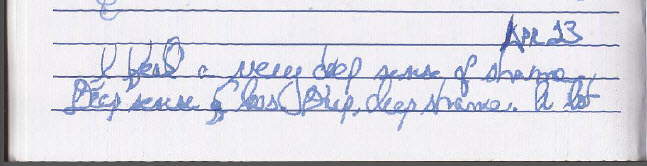 Apr 23
I feel a very deep sense of shame.
Deep sense of loss. Deep, deep shame. A lot